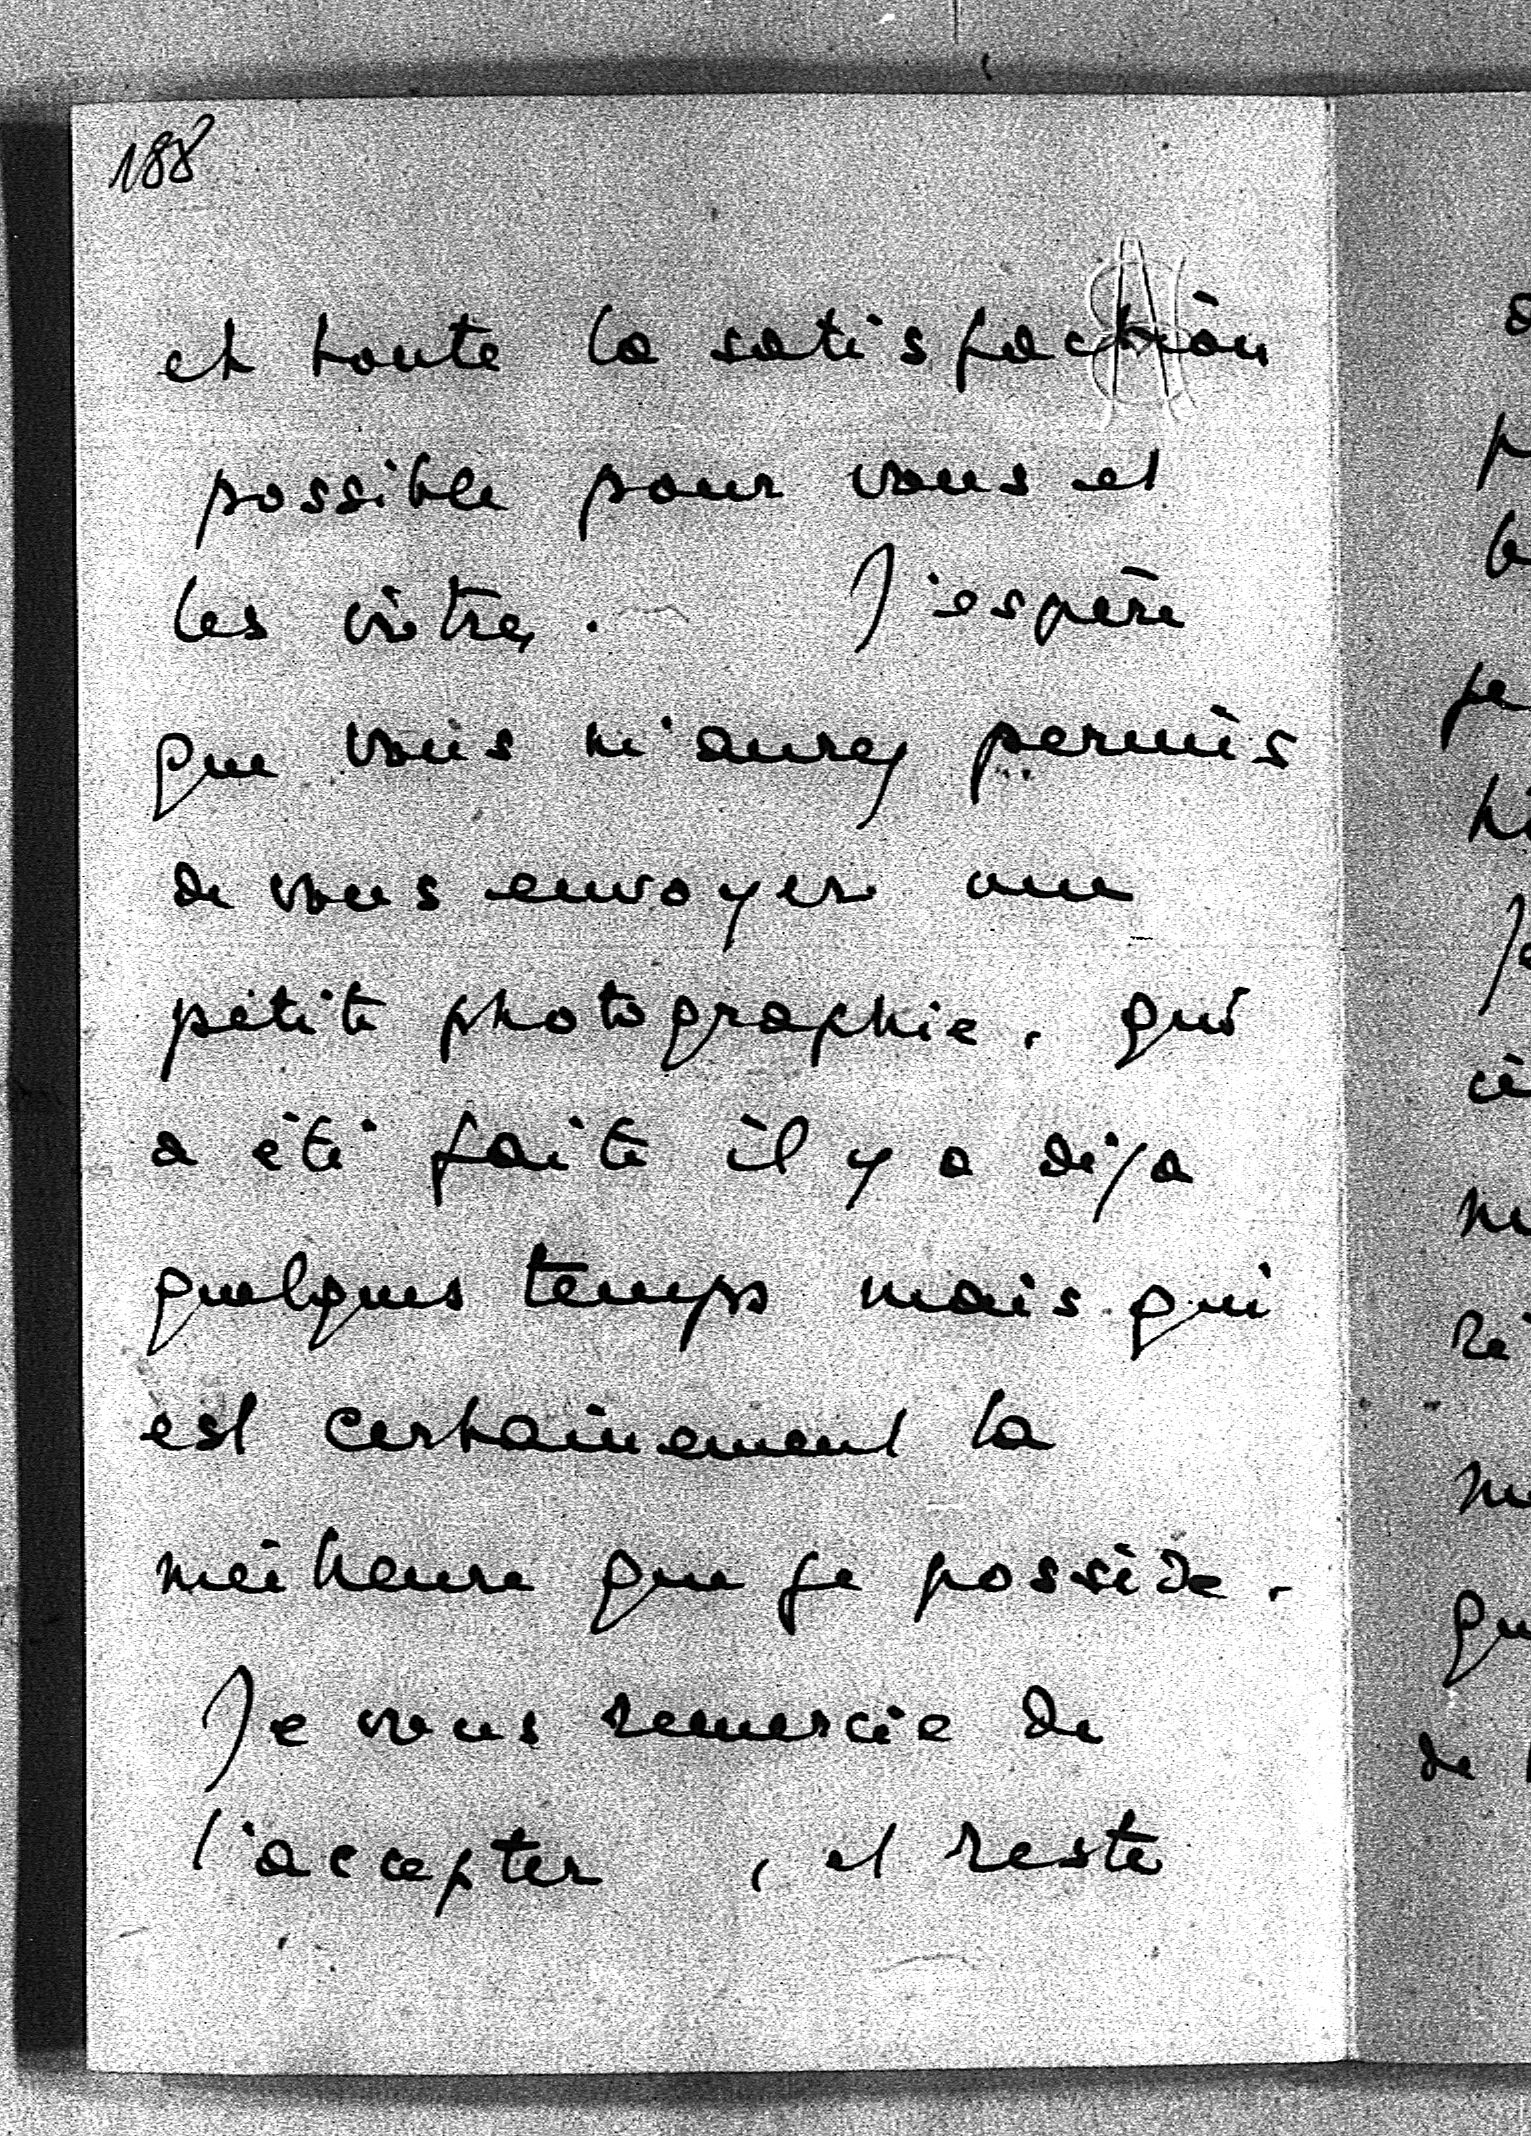 188
et toute la satisfaction
possible pour vous et
les vôtres. J'espère
que vous m'aurez permis
de vous envoyer une
petite photographie, qui
a été faite il y a déja
quelques temps mais qui
est certainement la
meilleure que je possède.
Je vous remercie de
l'accepter, et reste